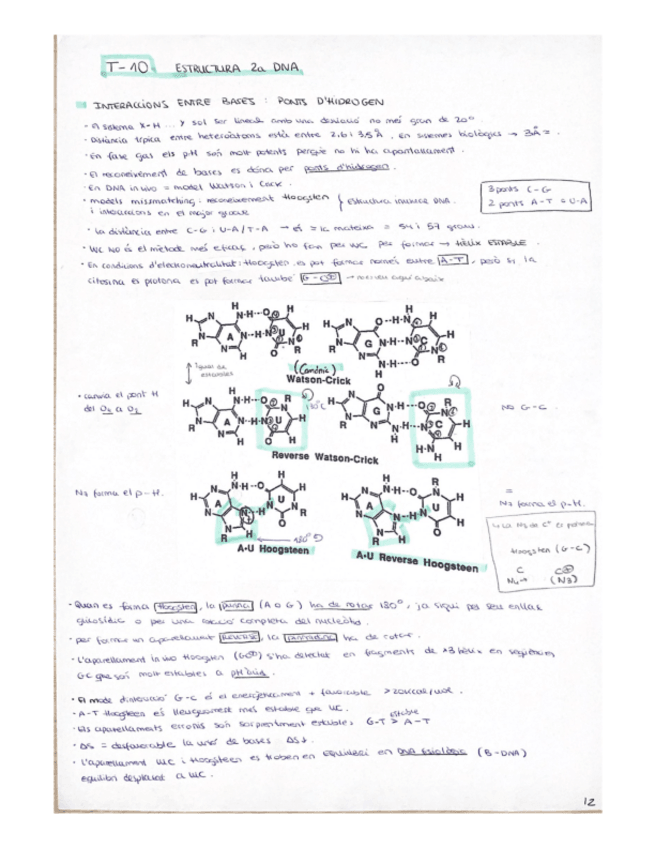 T-10. ESTRUCTURA 2a DNA
INTERACCIONS ENTRE BASES: PONTS D'HIDROGEN
· El sistema X-H ... Y sol ser lineal amb una desviació no més gran de 20º.
· Distància típica entre heteroàtoms està entre 2.6 i 3,5 Å, en sistemes biològics → 3Å
· En fase gas els p.H són molt potents perquè no hi ha apantallament.
· El reconeixement de bases es dóna per ponts d'hidrogen.
· En DNA in vivo = model Watson i Crick.
· models mismatching i reconeixement Hoogsten
i interaccions en el major groove
estructura DNA.
3 ponts C-G
2 ponts A-T o U-A
· la distància entre C-G i U-A/T-A → és la mateixa = 54 i 57 graus.
· WC No és el mètode més eficaç, però ho fan per WC per formar → hèlix ESTABLE.
· En condicions d'electroneutralitat: Hoogsten es pot formar només entre A-T, però si la
citosina es protona es pot formar també G-C⊕
(Canònic)
Watson-Crick
· canvia el pont H
del O4 a O2
180ºC
No G-C.
Reverse Watson-Crick
No forma el p-H.
=
No forma el p-H.
180º
A•U Hoogsteen
A•U Reverse Hoogsteen
Hoogsten (G-C)
C C⊕
(N3)
· Quan es forma Hoogsten, la purina (A o G) ha de rotar 180º, ja sigui pel seu enllaç
glicosídic o per una rotació completa del nucleòtid.
· per formar un aparellament Reverse, la pirimidina ha de rotar.
· L'aparellament in vivo Hoogsten (GC⊕) s'ha detectat en fragments de hèlix en seqüències
GC que són molt estables a pH àcids.
· El mode d'interacció G-C és el energèticament + favorable > 20 kcal/mol.
· A-T Hoogsten és lleugerament més estable que WC.
· Els aparellaments erronis són sorprenentment estables G-T > A-T
estable
· ΔS = desfavorable la unió de bases ΔS↓.
· L'aparellament WC i Hoogsten es troben en equilibri en DNA fisiològic (B-DNA)
equilibri desplaçat a WC.
12